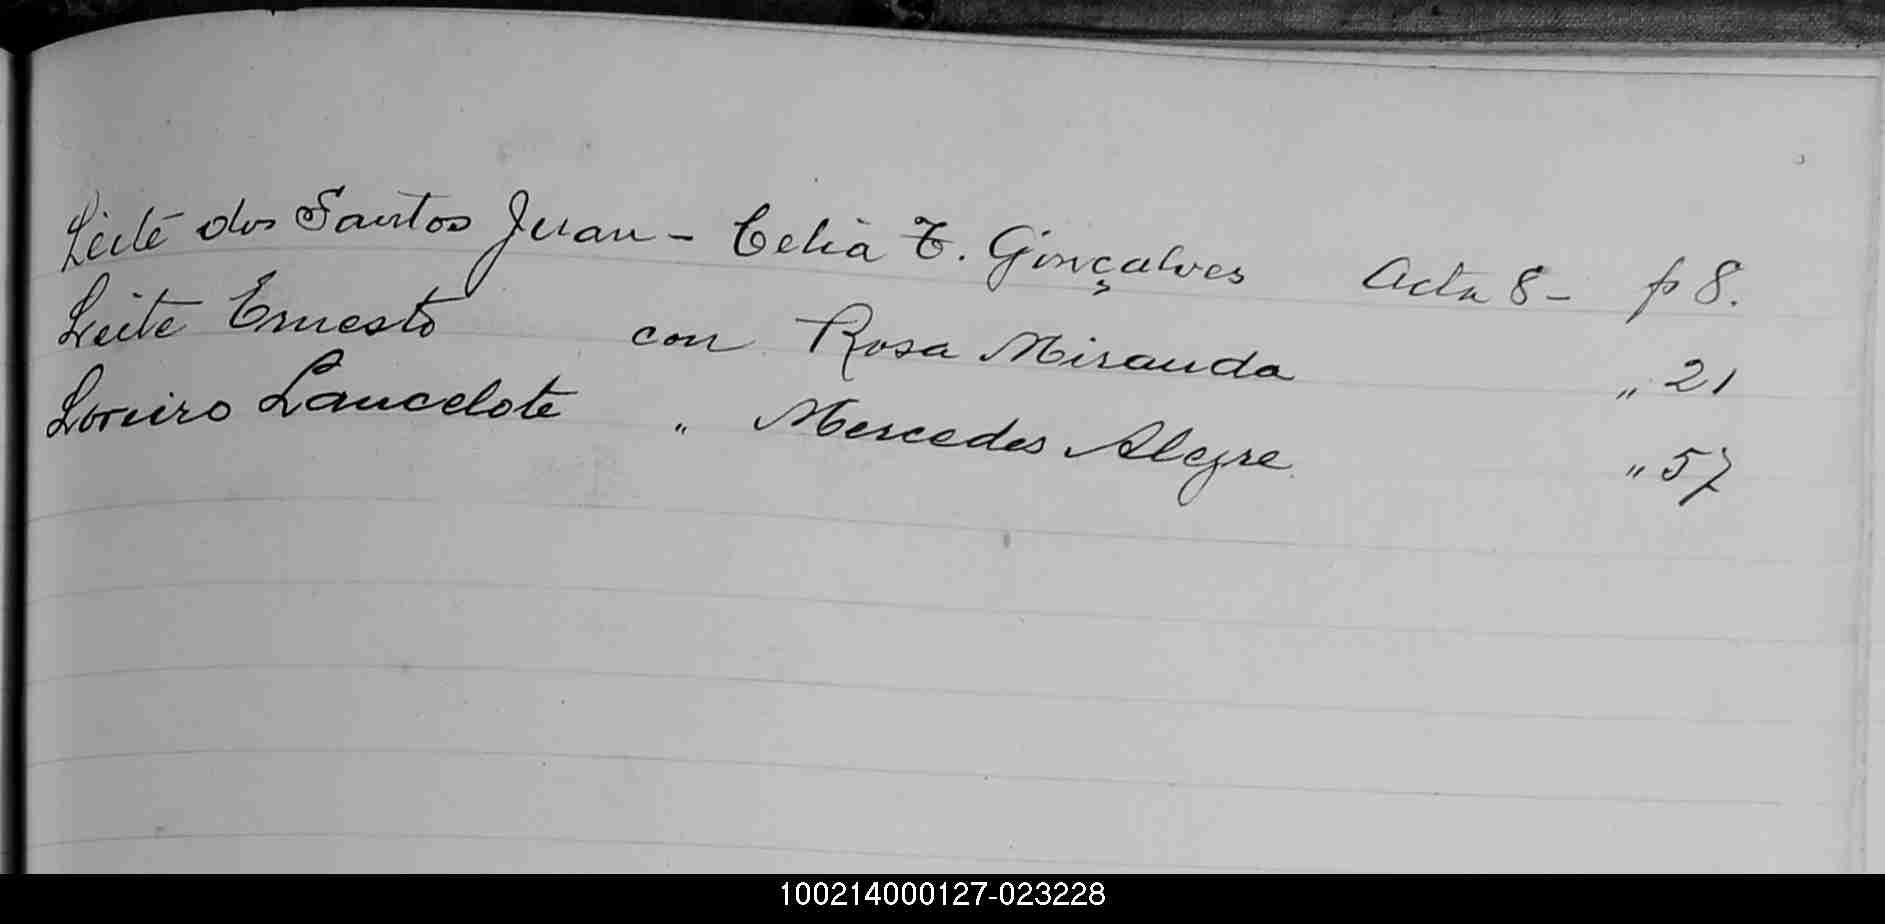 Leite dos Santos Juan - Celia T. Gonçalves Acta 8 - p 8.
Leite Ernesto con Rosa Miranda " 21
Loreiro Lancelote " Mercedes Alegre " 57
100214000127-023228